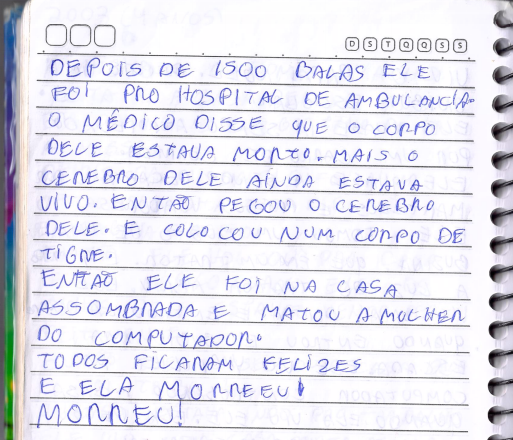 D S T Q Q S S
DEPOIS DE 1500 BALAS ELE
FOI PRO HOSPITAL DE AMBULANCIA.
O MÉDICO DISSE QUE O CORPO
DELE ESTAVA MORTO. MAIS O
CEREBRO DELE AINDA ESTAVA
VIVO. ENTÃO PEGOU O CEREBRO
DELE. E COLOCOU NUM CORPO DE
TIGRE.
ENTÃO ELE FOI NA CASA
ASSOMBRADA E MATOU A MULHER
DO COMPUTADOR.
TODOS FICARAM FELIZES
E ELA MORREEU!
MORREU!